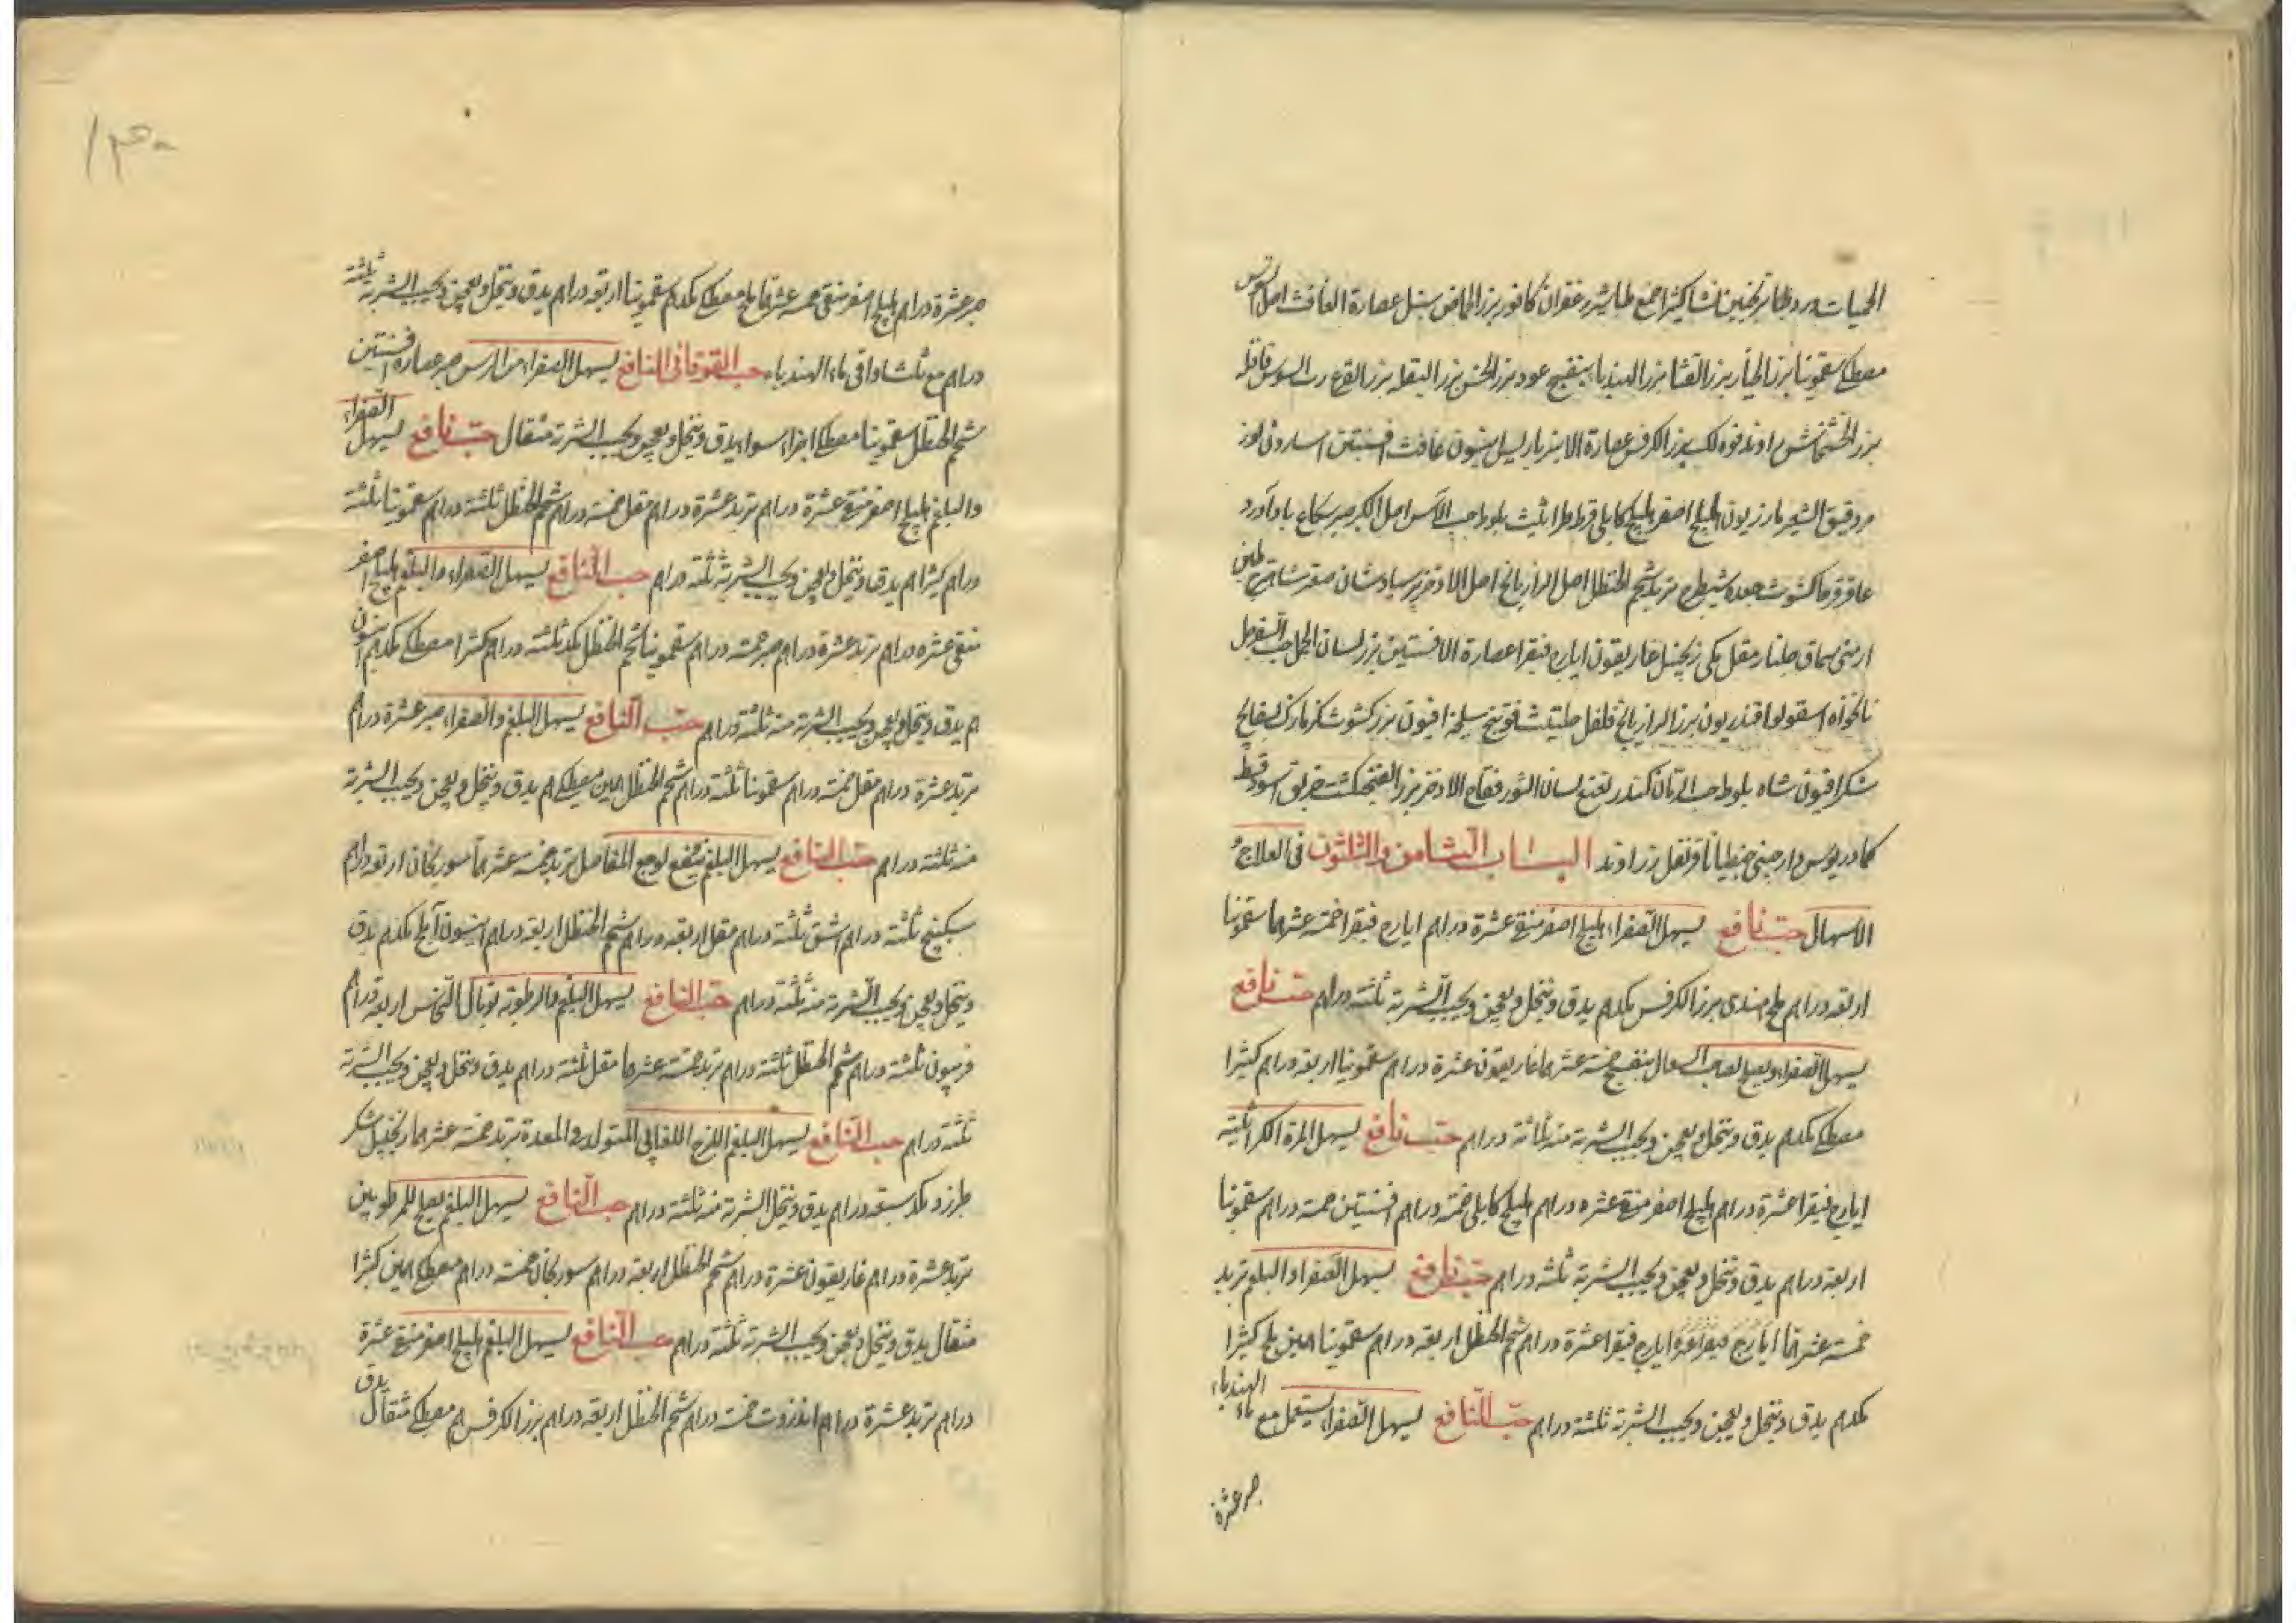 الحميات ورد طباشير ترنجبين نشا كثيرا صمغ طباشير زعفران كافور بزر الحماض سنبل عصارة الغافث اصل السوس
مصطكى سقمونيا بزر الخيار بزر القثا بزر الهندبا بنفسج عود بزر الخس بزر البقله بزر القرع رب السوس قاقله
بزر الخشخاش راوند فوه لك بزر الكرفس عصارة الامبرباريس انيسون غافث افسنتين اسارون لوز
مر دقيق الشعير مازريون هليلج اصفر هليلج كابلى قرط طراثيث بلوط حب الآس اصل الكبر صبر سكاع باد آورد
عاقرقرحا كشوث جعده شيطرج تربد شحم الحنظل اصل الرازيانج اصل الاذخر برسياوشان صعتر شاهترج طين
ارمنى سماق جلنار مقل مكى زنجبيل غاريقون ايارج فيقرا عصارة الافسنتين بزر لسان الحمل حب السفرجل
نانخواه اسقولوقندريون بزر الرازيانج فلفل حلتيت فوتنج سليخه افيون بزر كشوث
شكر افيون شاه بلوط حب الرمان كندر نعنع لسان الثور فقاح الاذخر بزر الفنجنكشت خربق اسود قسط
كمادريوس دارصينى جنطيانا قرنفل زراوند الباب الثامن والثلثون فى العلاج
الاسهال حب نافع يسهل الصفراء هليلج اصفر منقى عشرة دراهم ايارج فيقرا خمسة عشر درهما سقمونيا
اربعة دراهم ملح هندى بزر الكرفس مكدرهم يدق وينخل ويعجن ويحبب الشربة ثلثة دراهم حب نافع
يسهل الصفراء ويصلح لصاحب السعال بنفسج خمسة عشر درهما غاريقون عشرة دراهم سقمونيا اربعة دراهم كثيرا
مصطكى مكدرهم يدق وينخل ويعجن ويحبب الشربة منه ثلاثة دراهم حب نافع يسهل المرة الكراثية
ايارج فيقرا عشرة دراهم هليلج اصفر منقى عشره دراهم هليلج كابلى خمسة دراهم افسنتين خمسة دراهم سقمونيا
اربعة دراهم يدق وينخل ويعجن ويحبب الشربة ثلثة دراهم حب نافع يسهل الصفراء والبلغم تربد
خمسة عشر درهما ايارج فيقرا عشرة ايارج فيقرا عشرة دراهم شحم الحنظل اربعة دراهم سقمونيا درهمين ملح كثيرا
مكدرهم يدق وينخل ويعجن ويحبب الشربة ثلثة دراهم حب النافع يسهل الصفراء يستعمل مع ماء الهندباء
صبر عشرة
صبر عشرة دراهم هليلج اصفر منقى خمسة عشر درهما ملح مصطكى مكدرهم سقمونيا اربعة دراهم يدق وينخل ويعجن ويحبب الشربة ثلثة
دراهم مع ثلث اواقى ماء الهندباء حب القوقانى النافع يسهل الصفراء من الراس صبر عصارة افسنتين
شحم الحنظل سقمونيا مصطكى اجزاء سواء يدق وينخل ويعجن ويحبب الشربة مثقال حب نافع يسهل الصفراء
والبلغم هليلج اصفر منقى عشرة دراهم تربد عشرة دراهم مقل خمسة دراهم شحم الحنظل ثلثة دراهم سقمونيا ثلثة
دراهم كثيرا درهم يدق وينخل ويعجن ويحبب الشربة ثلثة دراهم حب النافع يسهل الصفراء والبلغم هليلج اصفر
منقى عشره دراهم تربد عشرة دراهم صبر خمسة دراهم سقمونيا شحم الحنظل مكد ثلثة دراهم كثيرا مصطكى مكدرهم انيسون
درهم يدق وينخل ويعجن ويحبب الشربة منه ثلثة دراهم حب النافع يسهل البلغم والصفراء صبر عشرة دراهم
تربد عشرة دراهم مقل خمسة دراهم سقمونيا ثلثة دراهم شحم الحنظل درهمين مصطكى درهم يدق وينخل ويعجن ويحبب الشربة
منه ثلثة دراهم حب النافع يسهل البلغم ينفع لوجع المفاصل تربد خمسة عشر درهما سورنجان اربعة دراهم
سكبينج ثلثة دراهم اشق ثلثة دراهم مقل اربعة دراهم شحم الحنظل اربعة دراهم انيسون املج مكدرهم يدق
وينخل ويعجن ويحبب الشربة منه ثلثة دراهم حب النافع يسهل البلغم والرطوبة توبال النحاس اربعة دراهم
فربيون ثلثة دراهم شحم الحنظل ثلثة دراهم تربد خمسة عشر درهما مقل ثلثة دراهم يدق وينخل ويعجن ويحبب الشربة
ثلثة دراهم حب النافع يسهل البلغم اللزج المتولد فى المعدة تربد خمسة عشر درهما زنجبيل شكر
طبرزد مكد سبعة دراهم يدق وينخل الشربة منه ثلثة دراهم حب النافع يسهل البلغم يصلح للمرطوبين
تربد عشرة دراهم غاريقون عشرة دراهم شحم الحنظل اربعة دراهم سورنجان خمسة دراهم مصطكى درهمين كثيرا
مثقال يدق وينخل ويعجن ويحبب الشربة ثلثة دراهم حب النافع يسهل البلغم هليلج اصفر منقى عشرة
دراهم تربد عشرة دراهم انزروت خمسة دراهم شحم الحنظل اربعة دراهم بزر الكرفس درهم مصطكى مثقال يدق